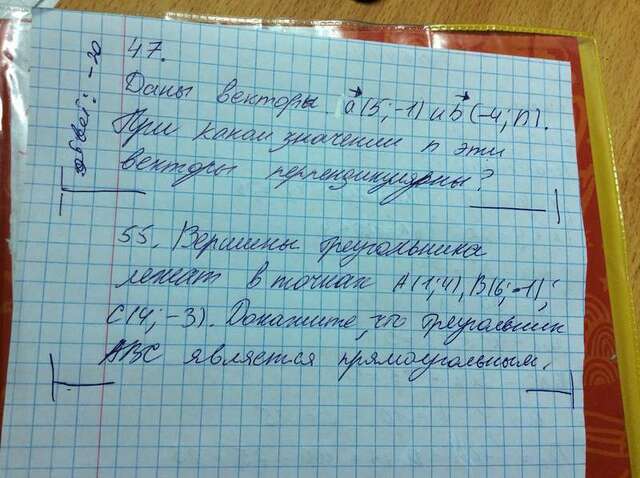 ответ: -20
47.
Даны векторы a(5;-1) и b(-4;n).
При каком значении n эти
векторы перпендикулярны?
55. Вершины треугольника
лежат в точках A(1;4), B(6;-1),
C(4;-3). Докажите, что треугольник
ABC является прямоугольным.